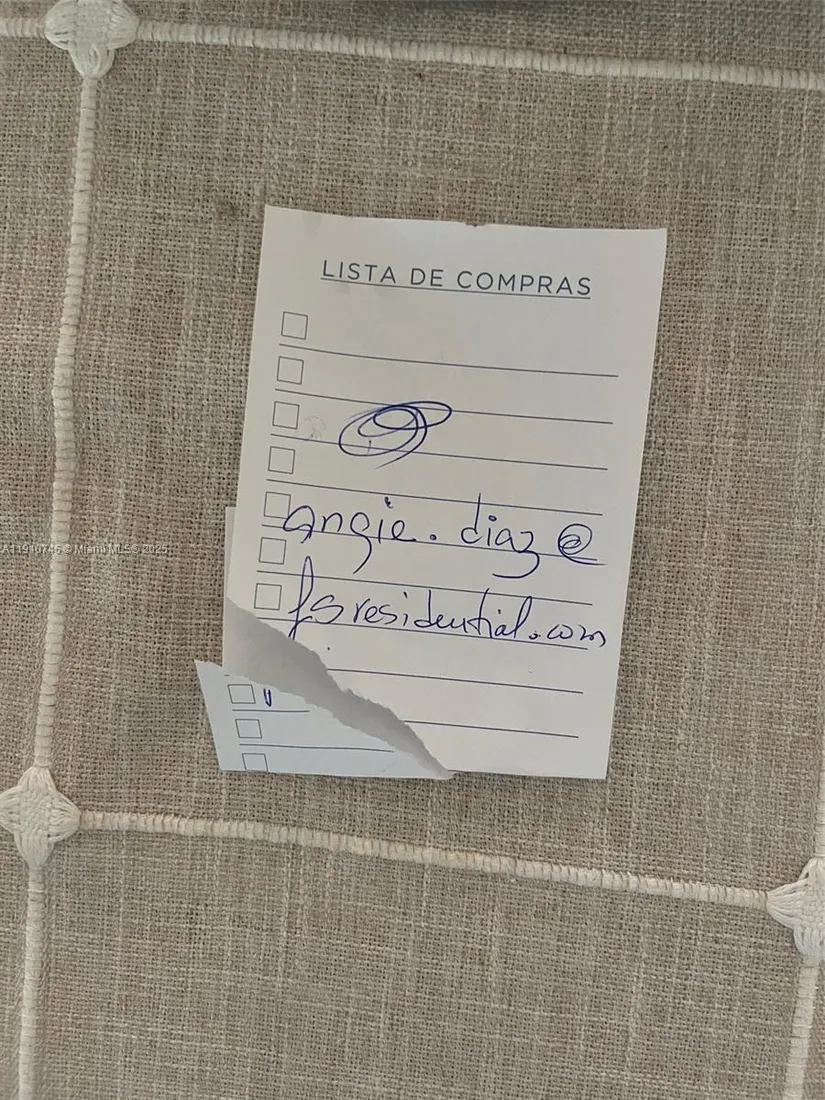 LISTA DE COMPRAS
angie.diaz@
fsresidential.com
A11910746 © Miami MLS® 2025